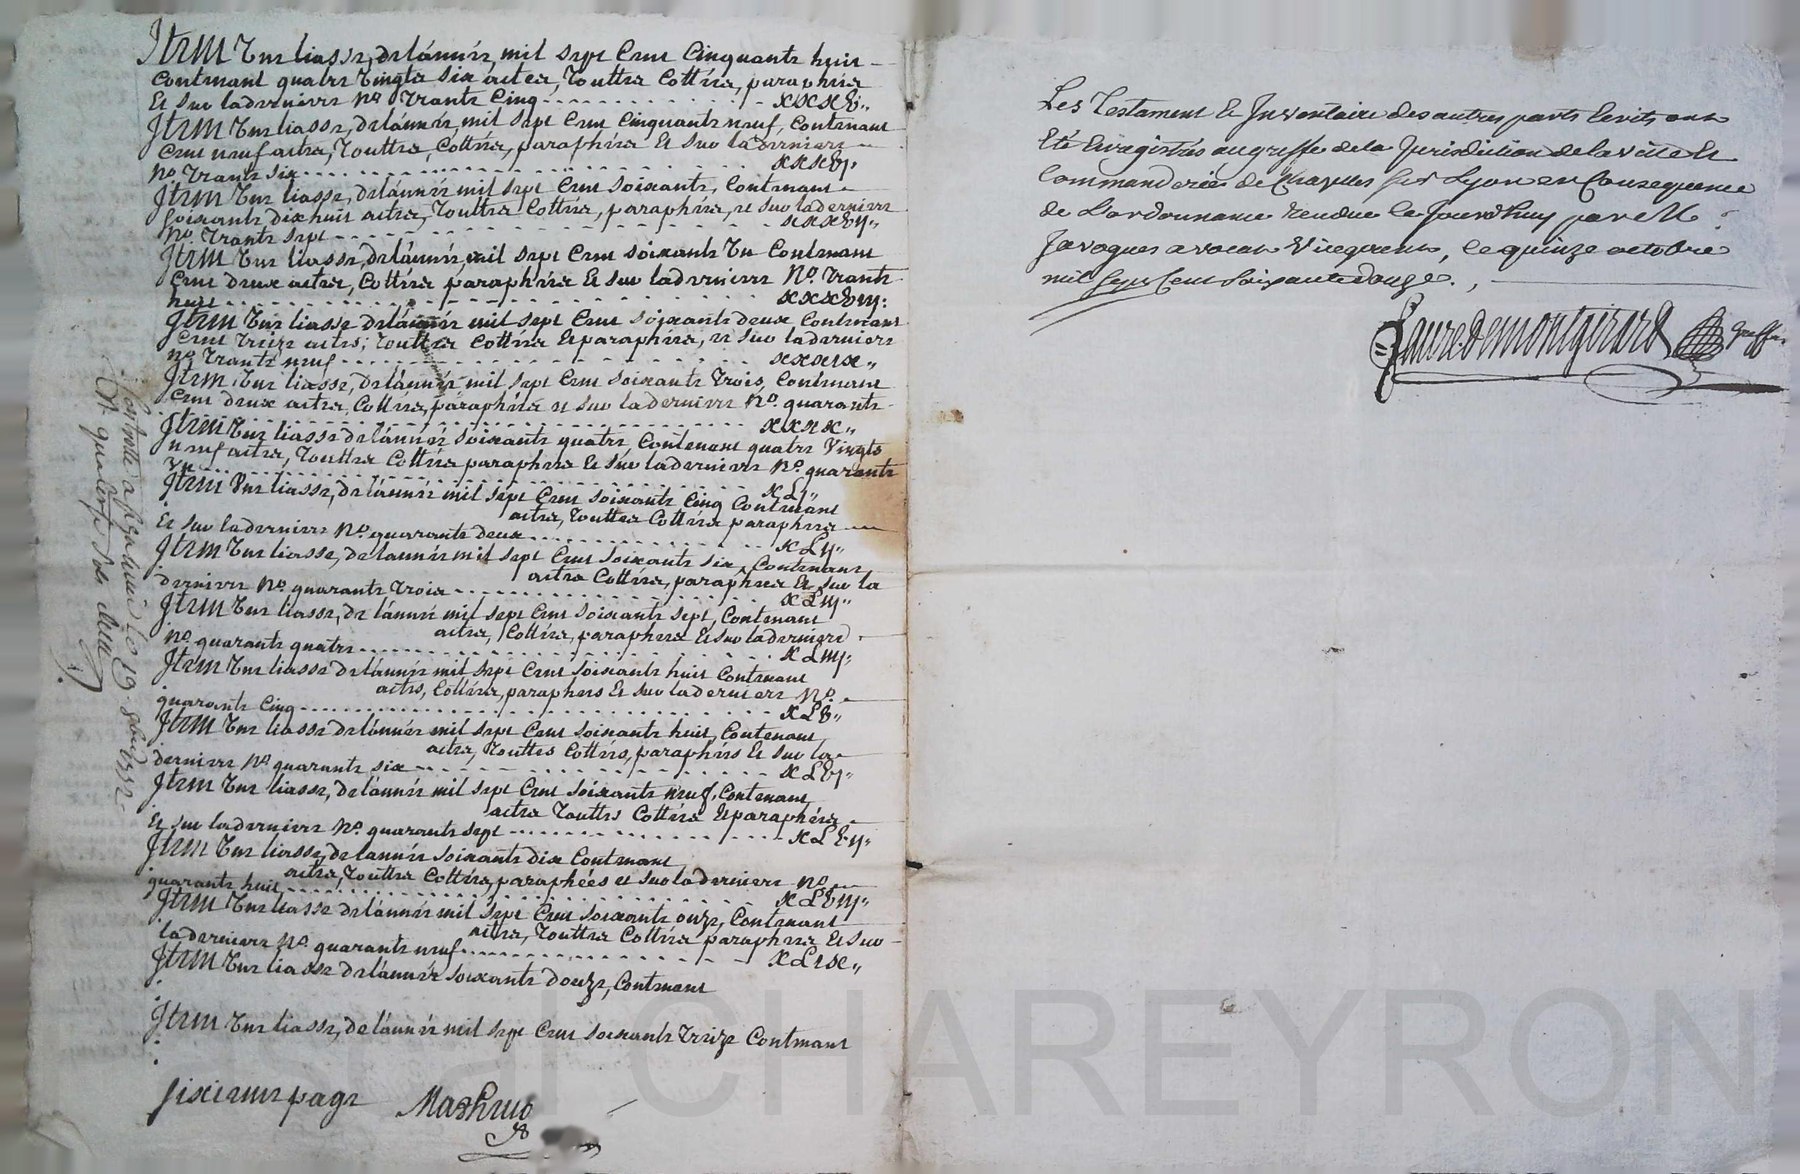 Jtem Une liasse, de lánnéé, mil sept Cent Cinquante huit
Contenant quatre Vingts six actes, Touttes Cottées, paraphées
Et sur la derniere No. Trante Cinq - - - xxxv..
Jtem Une liasse, de lánnéé, mil sept Cent Cinquante neuf, Contenant
Cent neuf actes, Touttes, Cottées, paraphées Et sur la derniere
No. Trante six - - - xxxvj.
Jtem Une liasse, de lánnéé mil sept Cent Soixante, Contenant
Soixante dix huit actes, Touttes Cottées, paraphées, et sur la derniere
No. Trante sept - - - xxxvij..
Jtem Une liasse, de lánnéé, mil sept Cent soixante Un Contenant
Cent deux actes, Cottées paraphées Et sur la derniere No. Trante
huit - - - xxxviij.
Jtem Une liasse de lánnéé mil sept Cent soixante deux Contenant
Cent Treize actes, Touttes Cottées Et paraphées, et sur la derniere
No. Trante neuf - - - xxxix..
Jtem, Une liasse, de lánnéé mil sept Cent soixante Trois, Contenant
Cent deux actes, Cottées, paraphées et sur la derniere No. quarante
- - - xxxx..
Jtem Une liasse de lánnéé soixante quatre Contenant quatre Vingts
neuf actes, Touttes Cottées paraphées Et sur la derniere No. quarante
Un - - - xLj..
Jtem Une liasse, de lánnéé mil sept Cent soixante Cinq Contenant
actes, Touttes Cottées paraphées
Et sur la derniere No. quarante deux - - - xLij..
Jtem Une liasse, de lannéé mil sept Cent soixante six, Contenant
actes Cottées, paraphées Et sur la
derniere No. quarante Trois - - - xLiij..
Jtem Une liasse, de lánnéé mil sept Cent soixante sept, Contenant
actes, Cottées, paraphées Et sur la derniere
No. quarante quatre - - - xLiiij.
Jtem Une liasse de lánnéé mil sept Cent soixante huit Contenant
actes, Cottées, paraphées Et sur la derniere No.
quarante Cinq - - - xLv..
Jtem Une liasse de lánnéé mil sept Cent soixante huit, Contenant
actes, Touttes Cottées, paraphées Et sur la
derniere No. quarante six - - - xLvj..
Jtem Une liasse, de lánnéé mil sept Cent soixante neuf, Contenant
actes Touttes Cottées Et paraphées
Et sur la derniere No. quarante sept - - - xLvij.
Jtem Une liasse, de lannéé soixante dix Contenant
actes, Touttes Cottées, paraphées et sur la derniere No.
quarante huit - - - xLviij..
Jtem Une liasse de lánnéé mil sept Cent soixante onze, Contenant
actes, Touttes Cottées paraphées Et sur
la derniere No. quarante neuf - - - xLix..
Jtem Une liasse de lánnéé soixante douze, Contenant
Jtem Une liasse, de lánnéé mil sept Cent soixante Treize Contenant
sixieme page
Les Testament Et Jnventaire des autres parts Ecrits ont
Eté Enregistrés au greffe de la Jurisdiction de la ville Et
Commanderie de Chazelles sur Lyon en Consequence
de L'ordonnance rendue Ce Jourdhuy par M.
Javogues avocat Vicegerent, le quinze octobre
mil sept Cent soixante douze.
faure de montgirard greffr.